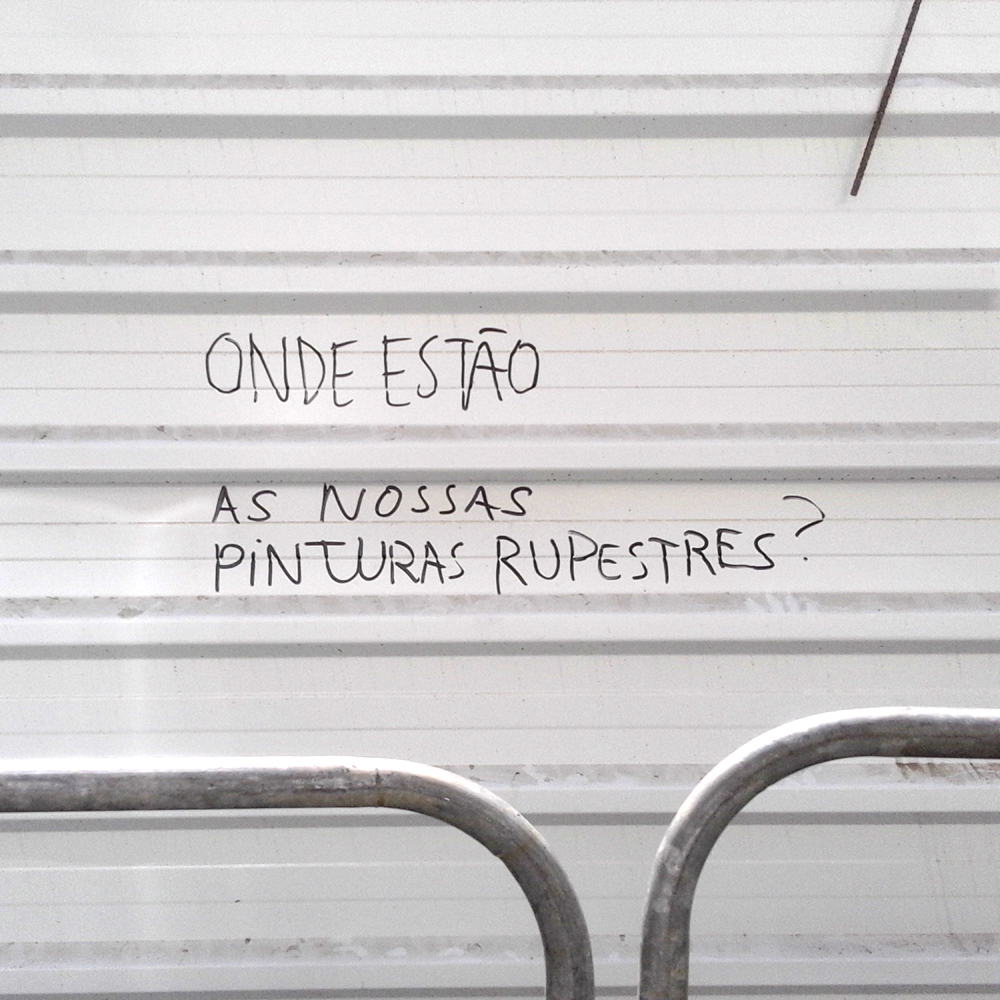 ONDE ESTÃO
AS NOSSAS
PINTURAS RUPESTRES?